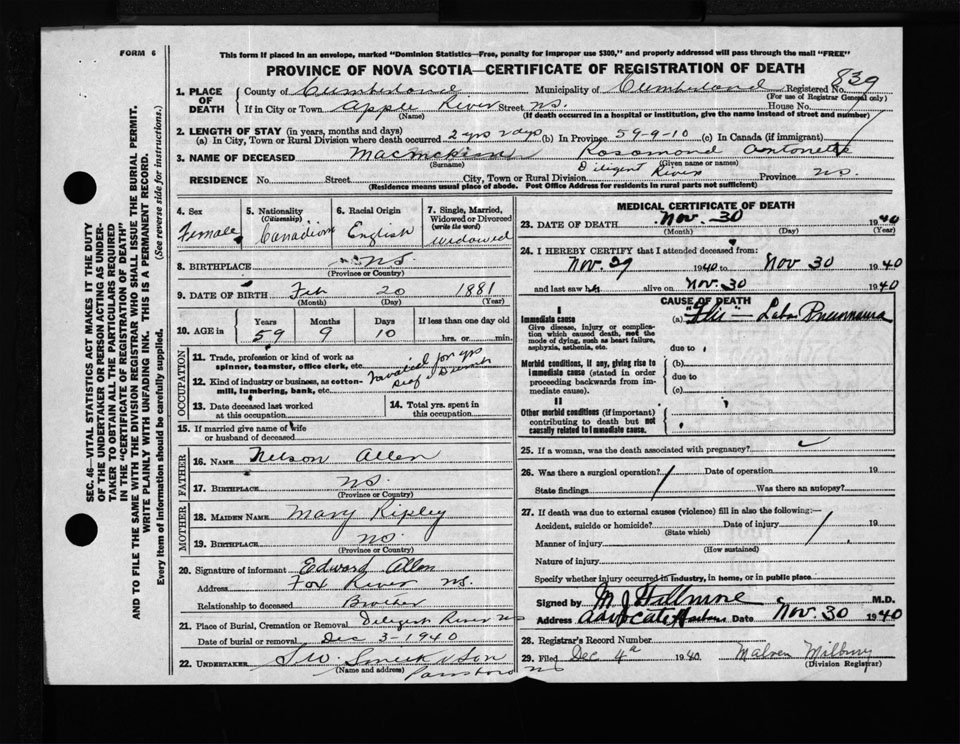 FORM 6
This form if placed in an envelope, marked "Dominion Statistics—Free, penalty for improper use $300," and properly addressed will pass through the mail "FREE"
PROVINCE OF NOVA SCOTIA—CERTIFICATE OF REGISTRATION OF DEATH
839
1. PLACE OF DEATH
County of Cumberland Municipality of Cumberland Registered No.
(For use of Registrar General only)
If in City or Town Apple River Street N.S. House No.
(Name) (If death occurred in a hospital or institution, give the name instead of street and number)
2. LENGTH OF STAY (in years, months and days)
(a) In City, Town or Rural Division where death occurred 2 yrs 2 dys (b) In Province 59-9-10 (c) In Canada (if immigrant)
3. NAME OF DECEASED Rosamond Antonette
(Surname) (Given name or names)
RESIDENCE No. Street City, Town or Rural Division Diligent River Province N.S.
(Residence means usual place of abode. Post Office Address for residents in rural parts not sufficient)
4. Sex
Female
5. Nationality (Citizenship)
Canadian
6. Racial Origin
English
7. Single, Married, Widowed or Divorced (write the word)
Widowed
8. BIRTHPLACE N.S.
(Province or Country)
9. DATE OF BIRTH Feb 20 1881
(Month) (Day) (Year)
10. AGE in Years Months Days If less than one day old
59 9 10 hrs. or min.
OCCUPATION
11. Trade, profession or kind of work as spinner, teamster, office clerk, etc.
12. Kind of industry or business, as cotton-mill, lumbering, bank, etc.
for yrs
13. Date deceased last worked at this occupation
14. Total yrs. spent in this occupation
15. If married give name of wife or husband of deceased
FATHER
16. NAME Nelson Allen
17. BIRTHPLACE N.S.
(Province or Country)
MOTHER
18. MAIDEN NAME Mary Ripley
19. BIRTHPLACE N.S.
(Province or Country)
20. Signature of informant Edward Allen
Address Fox River N.S.
Relationship to deceased Brother
21. Place of Burial, Cremation or Removal Diligent River N.S.
Date of burial or removal Dec 3-1940
22. UNDERTAKER & Son
(Name and address)
MEDICAL CERTIFICATE OF DEATH
23. DATE OF DEATH Nov. 30 1940
(Month) (Day) (Year)
24. I HEREBY CERTIFY that I attended deceased from:
Nov. 29 1940 to Nov 30 1940
and last saw h alive on Nov. 30 1940
CAUSE OF DEATH
I
Immediate cause
Give disease, injury or complication which caused death, not the mode of dying, such as heart failure, asphyxia, asthenia, etc.
(a) "Flu" — Lobar Pneumonia
due to
Morbid conditions, if any, giving rise to immediate cause (stated in order proceeding backwards from immediate cause).
(b)
due to
(c)
II
Other morbid conditions (if important) contributing to death but not causally related to immediate cause.
25. If a woman, was the death associated with pregnancy?
26. Was there a surgical operation? Date of operation 19
State findings Was there an autopsy?
27. If death was due to external causes (violence) fill in also the following:—
Accident, suicide or homicide? Date of injury 19
(State which)
Manner of injury
(How sustained)
Nature of injury
Specify whether injury occurred in industry, in home, or in public place
Signed by M.D.
Address Advocate Harbour Date Nov. 30 1940
28. Registrar's Record Number
29. Filed Dec 4th 1940
(Division Registrar)
SEC. 46—VITAL STATISTICS ACT MAKES IT THE DUTY
OF THE UNDERTAKER OR PERSON ACTING AS UNDER-
TAKER TO OBTAIN ALL THE PARTICULARS REQUIRED
IN THE "CERTIFICATE OF REGISTRATION OF DEATH"
AND TO FILE THE SAME WITH THE DIVISION REGISTRAR WHO SHALL ISSUE THE BURIAL PERMIT.
WRITE PLAINLY WITH UNFADING INK. THIS IS A PERMANENT RECORD.
Every item of information should be carefully supplied. (See reverse side for instructions.)